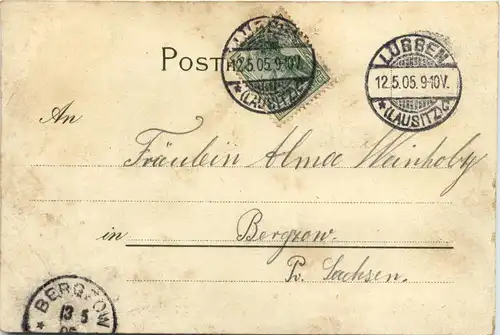 POST
LÜBBEN
12.5.05.9-10V.
* (LAUSITZ)
12.5.05.9-10V.
* (LAUSITZ)
An
Fräulein Alma Weinholtz
in Bergzow.
Pr. Sachsen.
BERGZOW
13 5
*